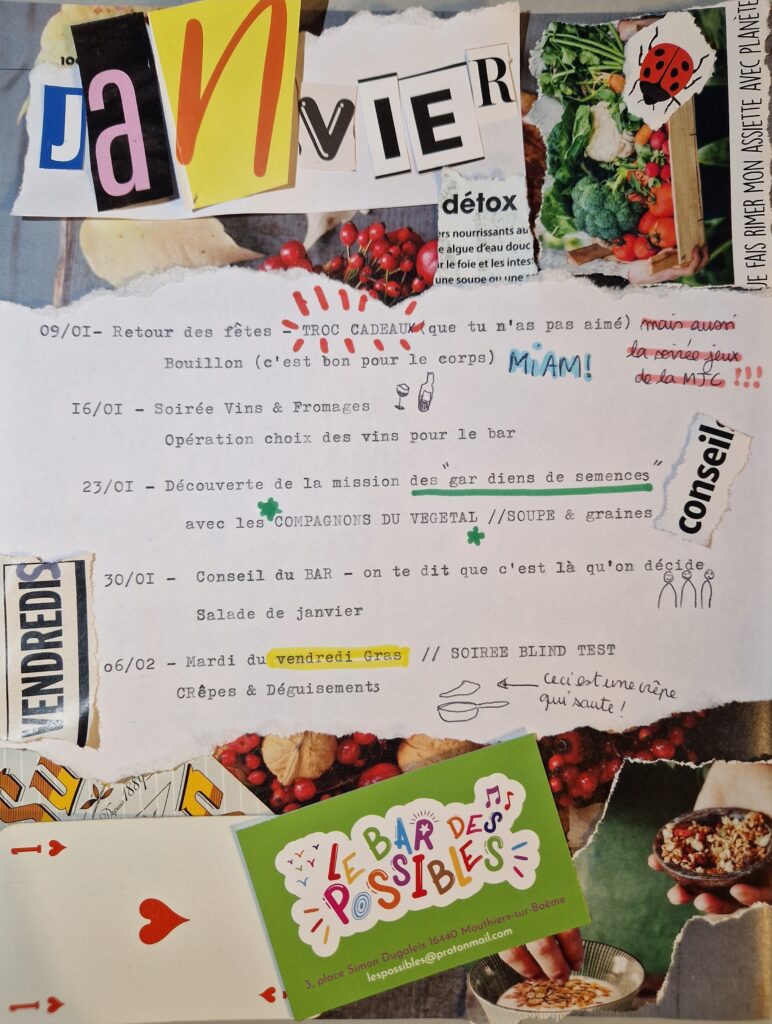 JANVIER
100
JE FAIS RIMER MON ASSIETTE AVEC PLANÈTE
détox
ers nourrissants au
e algue d'eau douc
ur le foie et les intest
une soupe ou une s
09/01- Retour des fêtes - TROC CADEAUX (que tu n'as pas aimé)
mais aussi
la soirée jeux
de la MJC !!!
Bouillon (c'est bon pour le corps) MIAM!
16/01 - Soirée Vins & Fromages
Opération choix des vins pour le bar
conseil
23/01 - Découverte de la mission des "gar diens de semences"
avec les COMPAGNONS DU VEGETAL //SOUPE & graines
VENDREDIS
30/01 - Conseil du BAR - on te dit que c'est là qu'on décide
Salade de janvier
06/02 - Mardi du vendredi Gras // SOIREE BLIND TEST
CRêpes & Déguisements
ceci est une crêpe
qui saute!
Depuis 1884
1
1
LE BAR DES
POSSIBLES
3, place Simon Dugaleix 16440 Mouthiers-sur-Boëme
lespossibles@protonmail.com